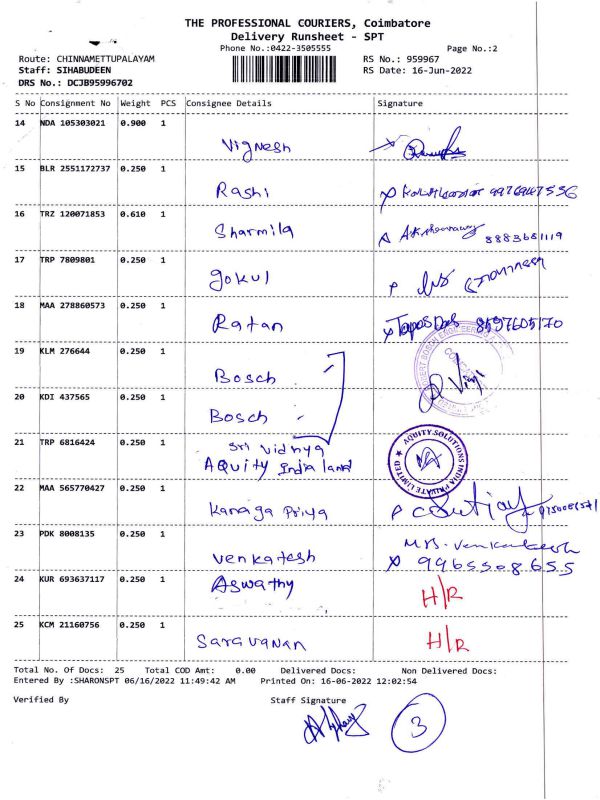 THE PROFESSIONAL COURIERS, Coimbatore
Delivery Runsheet - SPT
Phone No.:0422-3505555
Page No.:2
Route: CHINNAMETTUPALAYAM
RS No.: 959967
Staff: SIHABUDEEN
RS Date: 16-Jun-2022
DRS No.: DCJB95996702
S No Consignment No Weight PCS Consignee Details Signature
14 NDA 105303021 0.900 1
Vignesh
15 BLR 2551172737 0.250 1
Rashi
16 TRZ 120071853 0.610 1
Sharmila 8883681119
17 TRP 7809801 0.250 1
gokul
18 MAA 278860573 0.250 1
Ratan Tapas Das 8597605170
19 KLM 276644 0.250 1
Bosch
20 KDI 437565 0.250 1
Bosch
21 TRP 6816424 0.250 1
Sri Vidhya
AQuity India land
AQUITY SOLUTIONS INDIA PRIVATE LIMITED
22 MAA 565770427 0.250 1
Kanaga Priya
23 PDK 8008135 0.250 1
Venkatesh 9965508655
24 KUR 693637117 0.250 1
Aswathy H/R
25 KCM 21160756 0.250 1
Saravanan H/R
Total No. Of Docs: 25 Total COD Amt: 0.00 Delivered Docs: Non Delivered Docs:
Entered By :SHARONSPT 06/16/2022 11:49:42 AM Printed On: 16-06-2022 12:02:54
Verified By Staff Signature
3